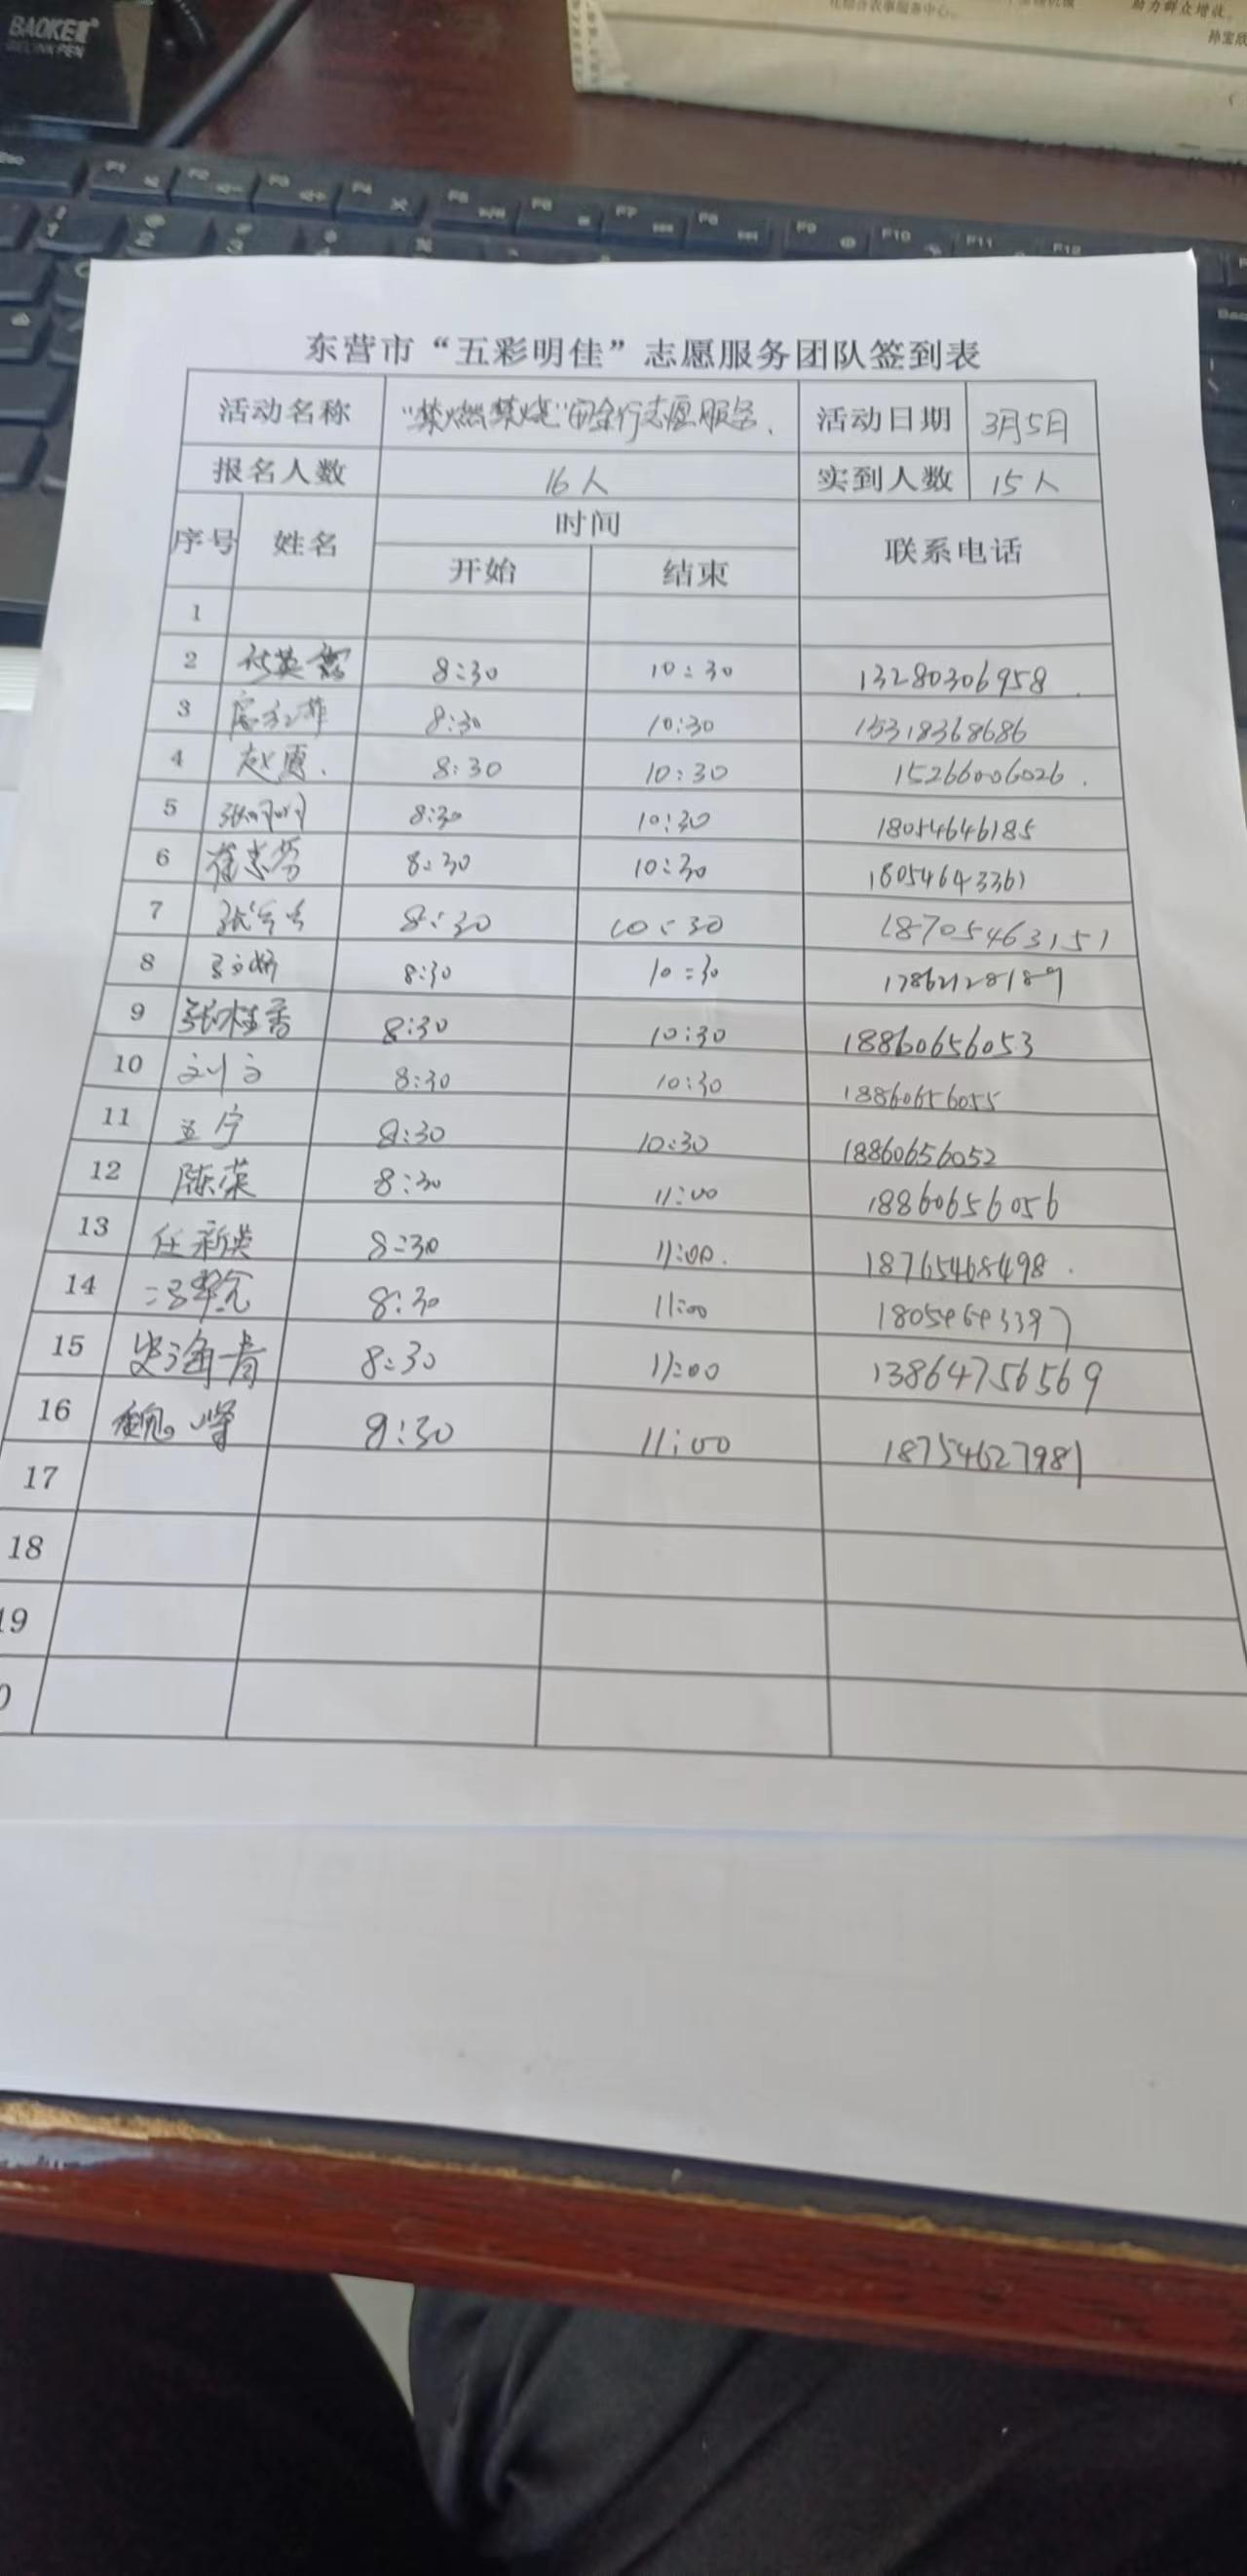 BAOKE
GEL INK PEN
助力群众增收。
孙宝欣
F1 F2 F3 F4 F5 F6 F7 F8 F9 F10 F11 F12
东营市“五彩明佳”志愿服务团队签到表
活动名称 “禁燃禁烧”安全行志愿服务 活动日期 3月5日
报名人数 16人 实到人数 15人
序号 姓名 时间 联系电话
开始 结束
1
2 8:30 10:30 13280306958
3 8:30 10:30 15318368686
4 赵夏 8:30 10:30 15266006026
5 8:30 10:30 18054646185
6 崔志芳 8:30 10:30 18054643361
7 8:30 10:30 18705463151
8 8:30 10:30 17862128189
9 张桂香 8:30 10:30 18860656053
10 刘文 8:30 10:30 18860656055
11 8:30 10:30 18860656052
12 陈荣 8:30 11:00 18860656056
13 任新英 8:30 11:00 18765468498
14 8:30 11:00 18054643397
15 史海青 8:30 11:00 13864756569
16 8:30 11:00 18754627981
17
18
19
0